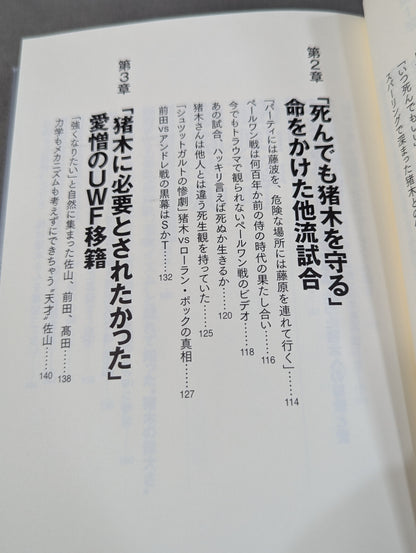 「いつ死んで
スパーリングで深まった
第2章
「死んでも猪木を守る」
命をかけた他流試合
「パーティには藤波を、危険な場所には藤原を連れて行く」……114
ペールワン戦は何百年か前の侍の時代の果たし合い……116
今でもトラウマで観られないペールワン戦のビデオ……118
あの試合、ハッキリ言えば死ぬか生きるか……120
猪木さんは他人とは違う死生観を持っていた……125
「シュツットガルトの惨劇」猪木vsローラン・ボックの真相……127
前田vsアンドレ戦の黒幕はSかT……132
第3章
「猪木に必要とされたかった」
愛憎のUWF移籍
「強くなりたい」と自然に集まった佐山、前田、髙田……138
力学もメカニズムも考えずにできちゃう“天才”佐山……140